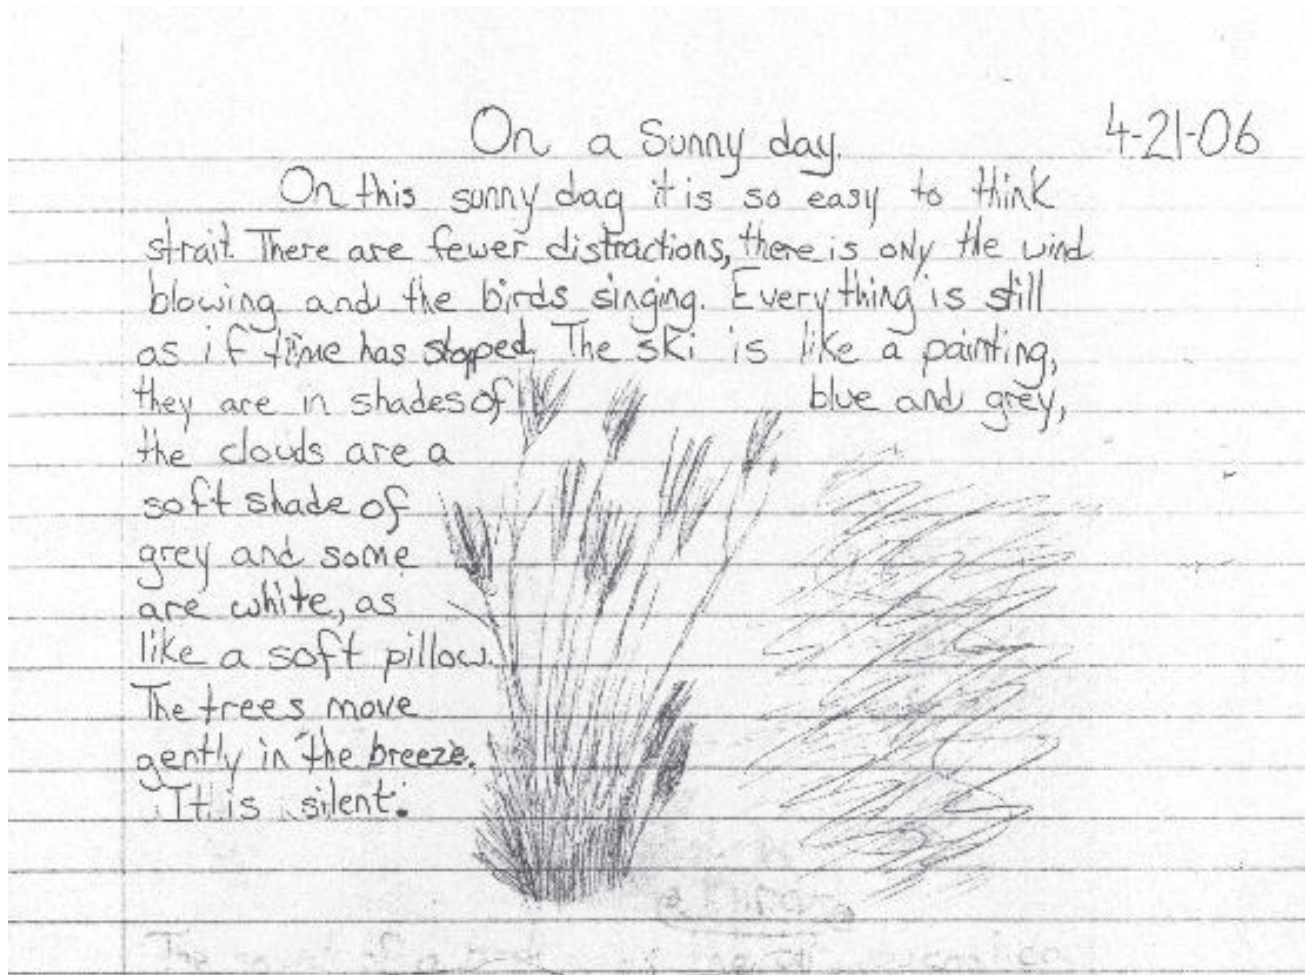 On a Sunny day. 4-21-06
On this sunny day it is so easy to think
strait. There are fewer distractions, there is only the wind
blowing and the birds singing. Everything is still
as if time has stopped. The ski is like a painting,
they are in shades of blue and grey,
the clouds are a
soft shade of
grey and some
are white, as
like a soft pillow.
The trees move
gently in the breeze.
It is silent.